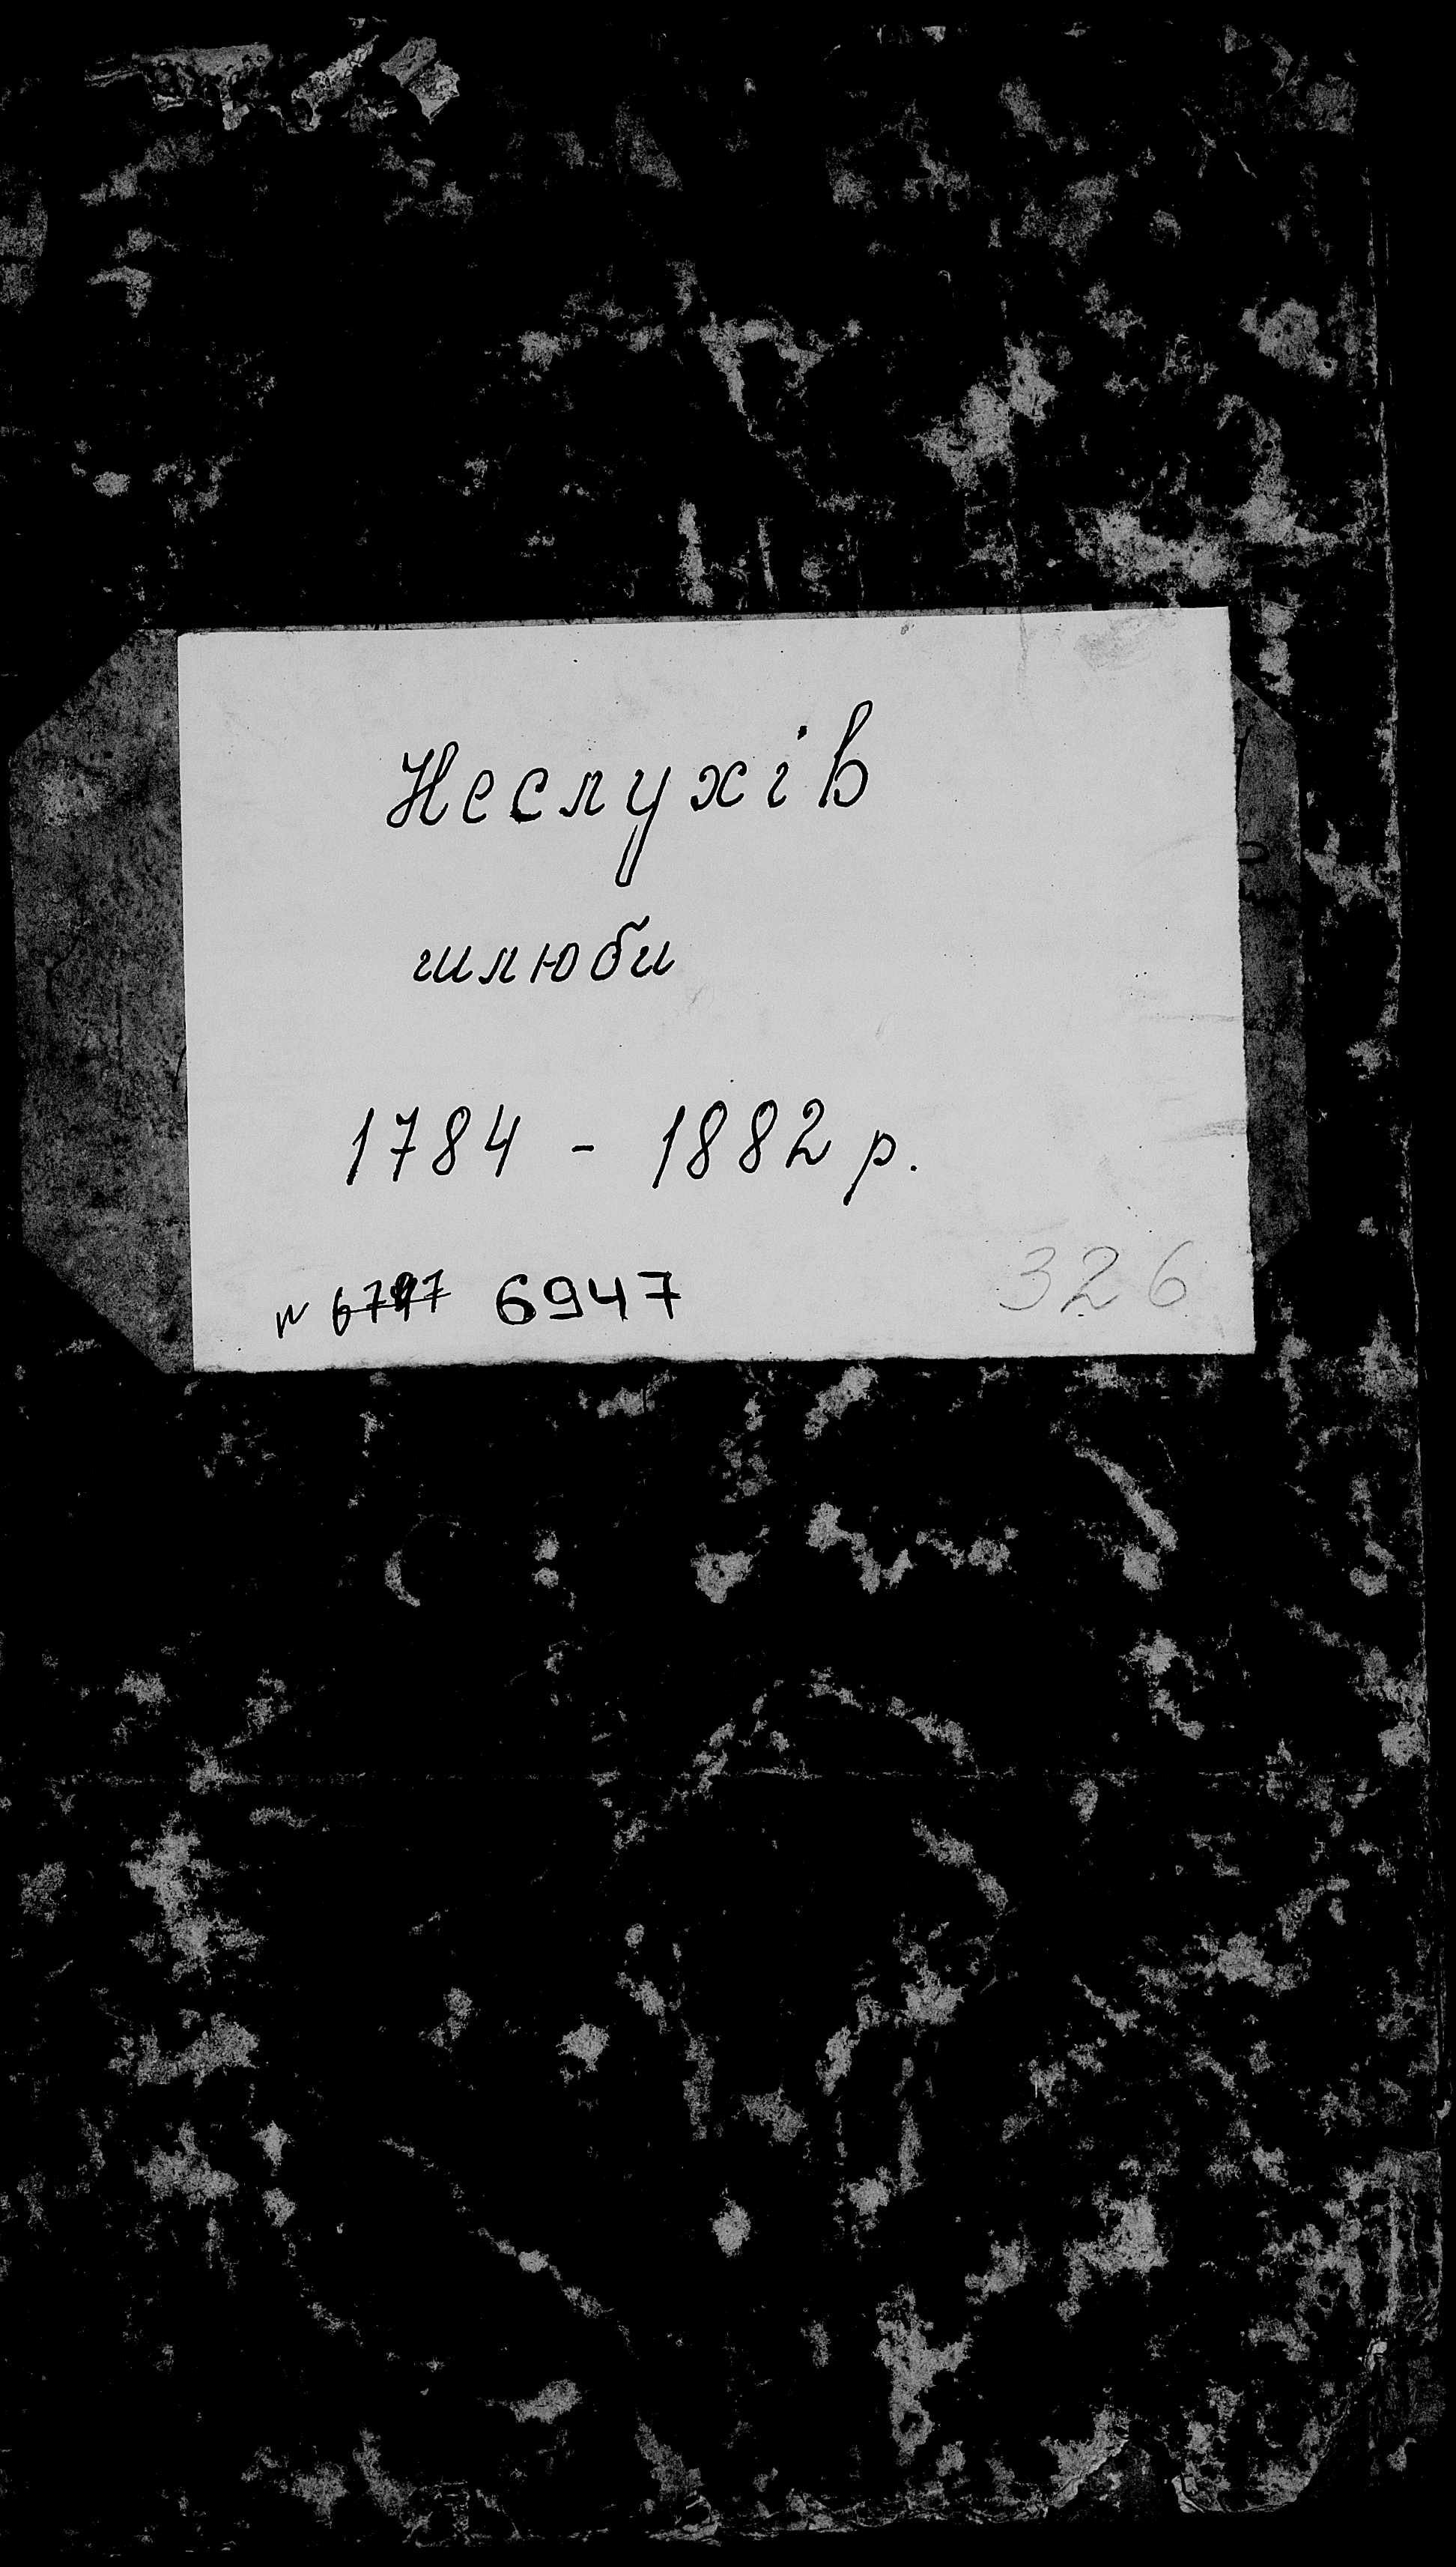 Неслухів
шлюби
1784 - 1882 р.
N 6797 6947
326